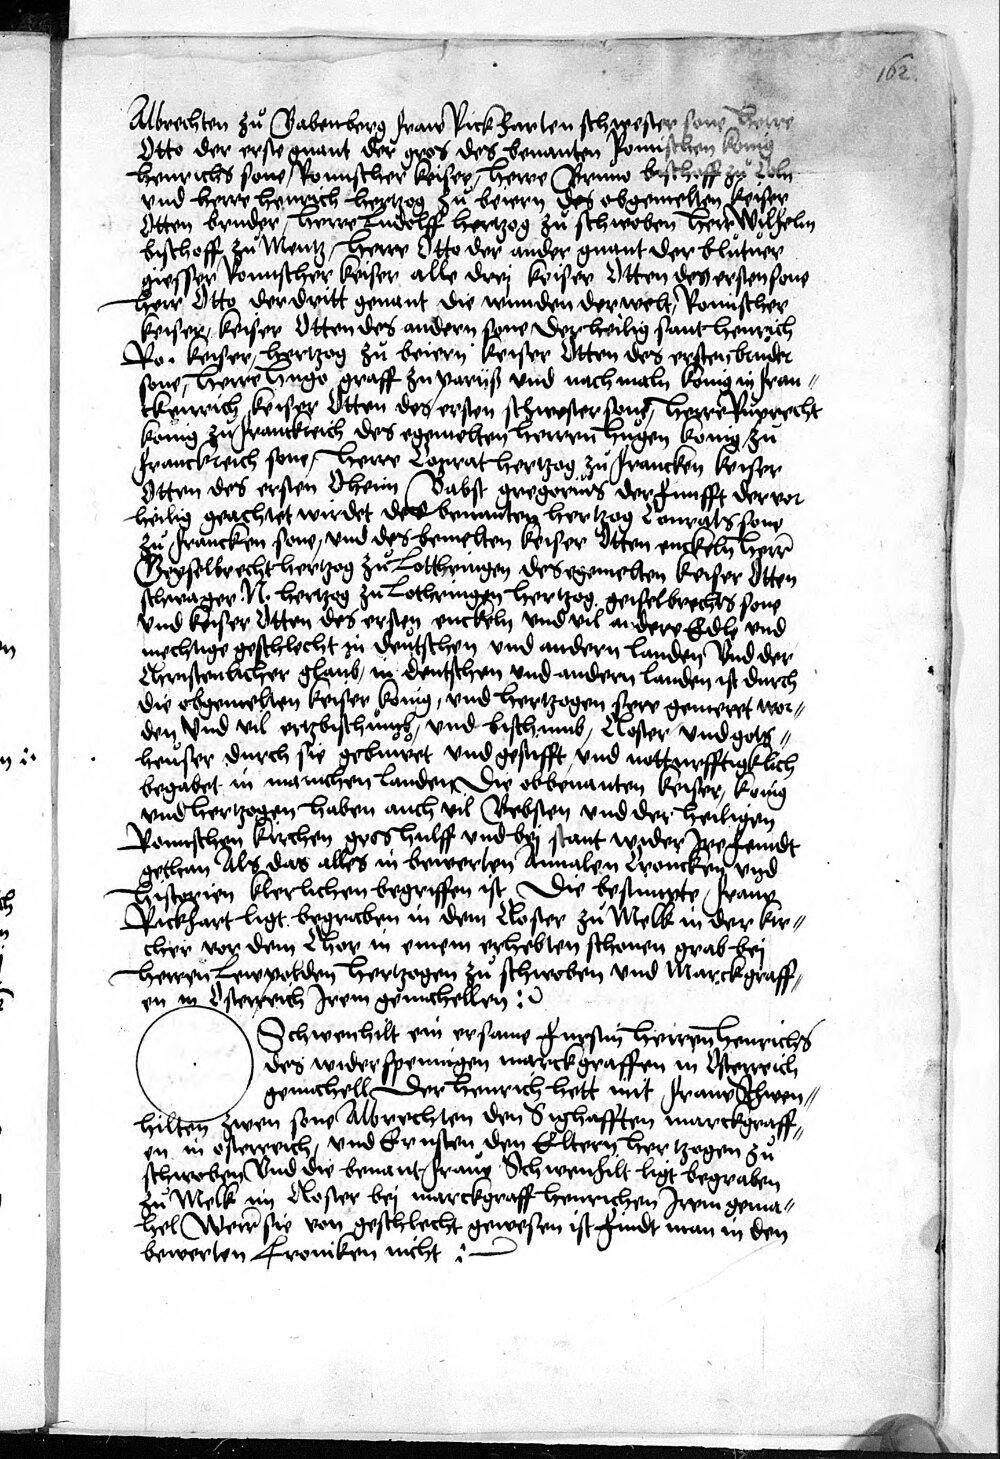 162.
Albrechten zů Babenberg fraw Rickharten schwester sone Herre
Otto der erste gnant der gros des benanten Romischen konig
Henrichs sone, Romischer keiser, herre Bruno bischoff zů Coln
vnd herre Henrich hertzog zů beiern des obgemelten keiser
Otten bruder, Herre Ludolff hertzog zů schwoben Herr Wilhelm
bischoff zů Mentz, Herre Otto der ander gnant der blůtuer
giesser Romischer keiser alle drej keiser Otten des ersten sone
Herr Otto der dritt genant die wunden der welt, Romischer
keiser, keiser Otten des andern sone Der heilig sant Henrich
Ro. keiser, hertzog zů beiern keiser Otten des ersten bruder
sone, Herre Hugo graff zu pariiß vnd nachmaln konig in fran〃
ckenrich keiser Otten des ersten schwester sone, Herre Ruprecht
konig zů franckreich des egemelten herren Hugen konig zů
franckreich sone, Herre Conrat hertzog zů francken keiser
Otten des ersten Oheim Babst gregorius der funfft der vor
heilig geachtet wirdet des benanten hertzog Conrats sone
zů francken sone, vnd des bemelten keiser Otten enckeln Herr
Geyselbrecht hertzog zů Lothringen des egemelten keiser Otten
schwager N. hertzog zů Lothringen hertzog geiselbrechts sone
vnd keiser Otten des ersten enckeln vnd vil andere Edle vnd
mechtige geschlecht in deutschen vnd andern landen Vnd der
Christenlicher glaub, in deutschen vnd andern landen ist durch
die obgemelten keiser konig, vnd hertzogen sere gemeret wor〃
den Vnd vil ertzbischtumb, vnd bischtumb, Closter vnd gots〃
heuser durch sie gebuwet vnd gestifft, vnd notturfftigklich
begabet in manchen landen, Die obbenanten keiser, konig
vnd hertzogen haben auch vil Bebsten vnd der heiligen
Romischen kirchen gros hulff vnd bej stant wider Ire feindt
gethan Als das alles in bewerten Annalen Croncken vnd
historien klerlichen begriffen ist Die bestimpte, fraw
Rickhart ligt begraben in dem Closter zů Melk in der kir〃
chen vor dem Chor in einem erhebten schonen grab bej
Herren Lewpolden hertzogen zů schwoben vnd Marckgraff〃
en in Osterreich Irem gemahellen :
Schwenhilt ein ersame furstin Herren Henrichs
des widerspennigen marckgraffen in Osterreich
gemahell, Der Henrich hett mit frawe Schwen〃
hilten zwen sone Albrechten den Sighafften marckgraff〃
en in osterreich, vnd Ernsten den Eltern hertzogen zů
schwoben, Vnd die benant frawe Schwenhilt ligt begraben
zů Melk im Closter bej marckgraff Henrichen Irem gema〃
hel Wer sie von geschlecht gewesen ist findt man in den
bewerten Croniken nicht :